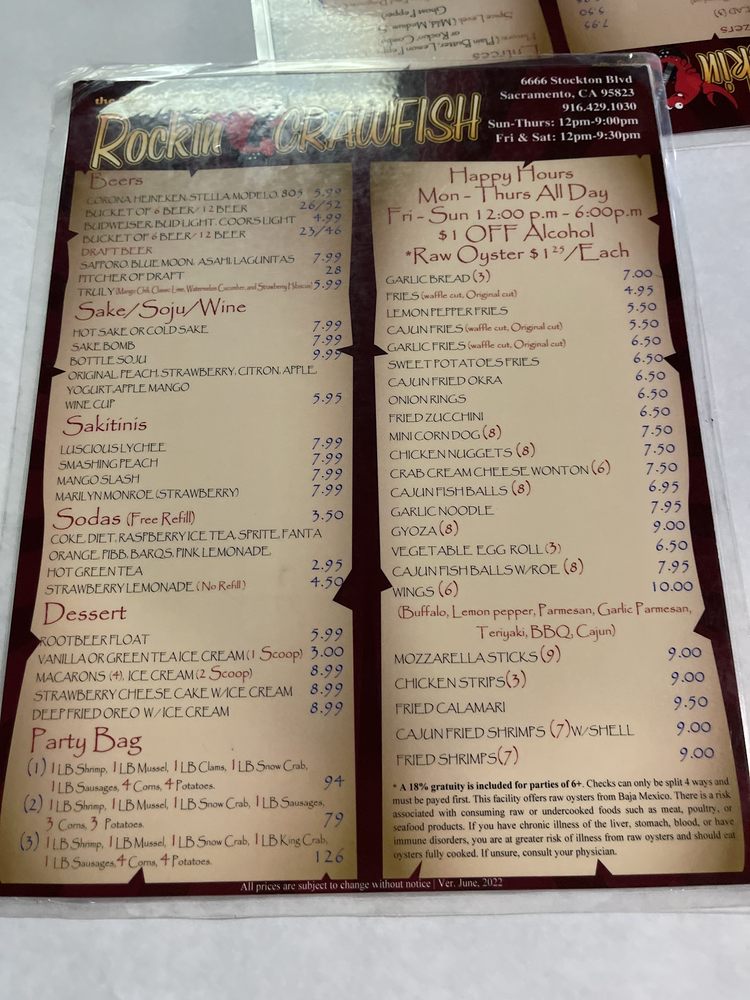 the
Rockin CRAWFISH
6666 Stockton Blvd
Sacramento, CA 95823
916.429.1030
Sun-Thurs: 12pm-9:00pm
Fri & Sat: 12pm-9:30pm
Beers
CORONA, HEINEKEN, STELLA, MODELO, 805 5.99
BUCKET OF 6 BEER/ 12 BEER 26/52
BUDWEISER, BUD LIGHT, COORS LIGHT 4.99
BUCKET OF 6 BEER/ 12 BEER 23/46
DRAFT BEER
SAPPORO, BLUE MOON, ASAHI, LAGUNITAS 7.99
PITCHER OF DRAFT 28
TRULY (Mango Chili, Classic Lime, Watermelon Cucumber, and Strawberry Hibiscus) 5.99
Sake/Soju/Wine
HOT SAKE OR COLD SAKE 7.99
SAKE BOMB 7.99
BOTTLE SOJU 9.99
ORIGINAL, PEACH, STRAWBERRY, CITRON, APPLE,
YOGURT, APPLE MANGO
WINE CUP 5.95
Sakitinis
LUSCIOUS LYCHEE 7.99
SMASHING PEACH 7.99
MANGO SLASH 7.99
MARILYN MONROE (STRAWBERRY) 7.99
Sodas (Free Refill) 3.50
COKE, DIET, RASPBERRY ICE TEA, SPRITE, FANTA
ORANGE, PIBB, BARQS, PINK LEMONADE,
HOT GREEN TEA 2.95
STRAWBERRY LEMONADE ( No Refill ) 4.50
Dessert
ROOTBEER FLOAT 5.99
VANILLA OR GREEN TEA ICE CREAM (1 Scoop) 3.00
MACARONS (4), ICE CREAM (2 Scoop) 8.99
STRAWBERRY CHEESE CAKE W/ICE CREAM 8.99
DEEP FRIED OREO W/ ICE CREAM 8.99
Party Bag
(1) 1 LB Shrimp, 1 LB Mussel, 1 LB Clams, 1 LB Snow Crab,
1 LB Sausages, 4 Corns, 4 Potatoes. 94
(2) 1 LB Shrimp, 1 LB Mussel, 1 LB Snow Crab, 1 LB Sausages,
3 Corns, 3 Potatoes. 79
(3) 1 LB Shrimp, 1 LB Mussel, 1 LB Snow Crab, 1 LB King Crab,
1 LB Sausages, 4 Corns, 4 Potatoes. 126
Happy Hours
Mon - Thurs All Day
Fri - Sun 12:00 p.m - 6:00p.m
$1 OFF Alcohol
*Raw Oyster $1 25/Each
GARLIC BREAD (3) 7.00
FRIES (waffle cut, Original cut) 4.95
LEMON PEPPER FRIES 5.50
CAJUN FRIES (waffle cut, Original cut) 5.50
GARLIC FRIES (waffle cut, Original cut) 6.50
SWEET POTATOES FRIES 6.50
CAJUN FRIED OKRA 6.50
ONION RINGS 6.50
FRIED ZUCCHINI 6.50
MINI CORN DOG (8) 7.50
CHICKEN NUGGETS (8) 7.50
CRAB CREAM CHEESE WONTON (6) 7.50
CAJUN FISH BALLS (8) 6.95
GARLIC NOODLE 7.95
GYOZA (8) 9.00
VEGETABLE EGG ROLL (3) 6.50
CAJUN FISH BALLS W/ROE (8) 7.95
WINGS (6) 10.00
(Buffalo, Lemon pepper, Parmesan, Garlic Parmesan,
Teriyaki, BBQ, Cajun)
MOZZARELLA STICKS (9) 9.00
CHICKEN STRIPS (3) 9.00
FRIED CALAMARI 9.50
CAJUN FRIED SHRIMPS (7) W/SHELL 9.00
FRIED SHRIMPS (7) 9.00
* A 18% gratuity is included for parties of 6+. Checks can only be split 4 ways and
must be payed first. This facility offers raw oysters from Baja Mexico. There is a risk
associated with consuming raw or undercooked foods such as meat, poultry, or
seafood products. If you have chronic illness of the liver, stomach, blood, or have
immune disorders, you are at greater risk of illness from raw oysters and should eat
oysters fully cooked. If unsure, consult your physician.
All prices are subject to change without notice | Ver. June, 2022